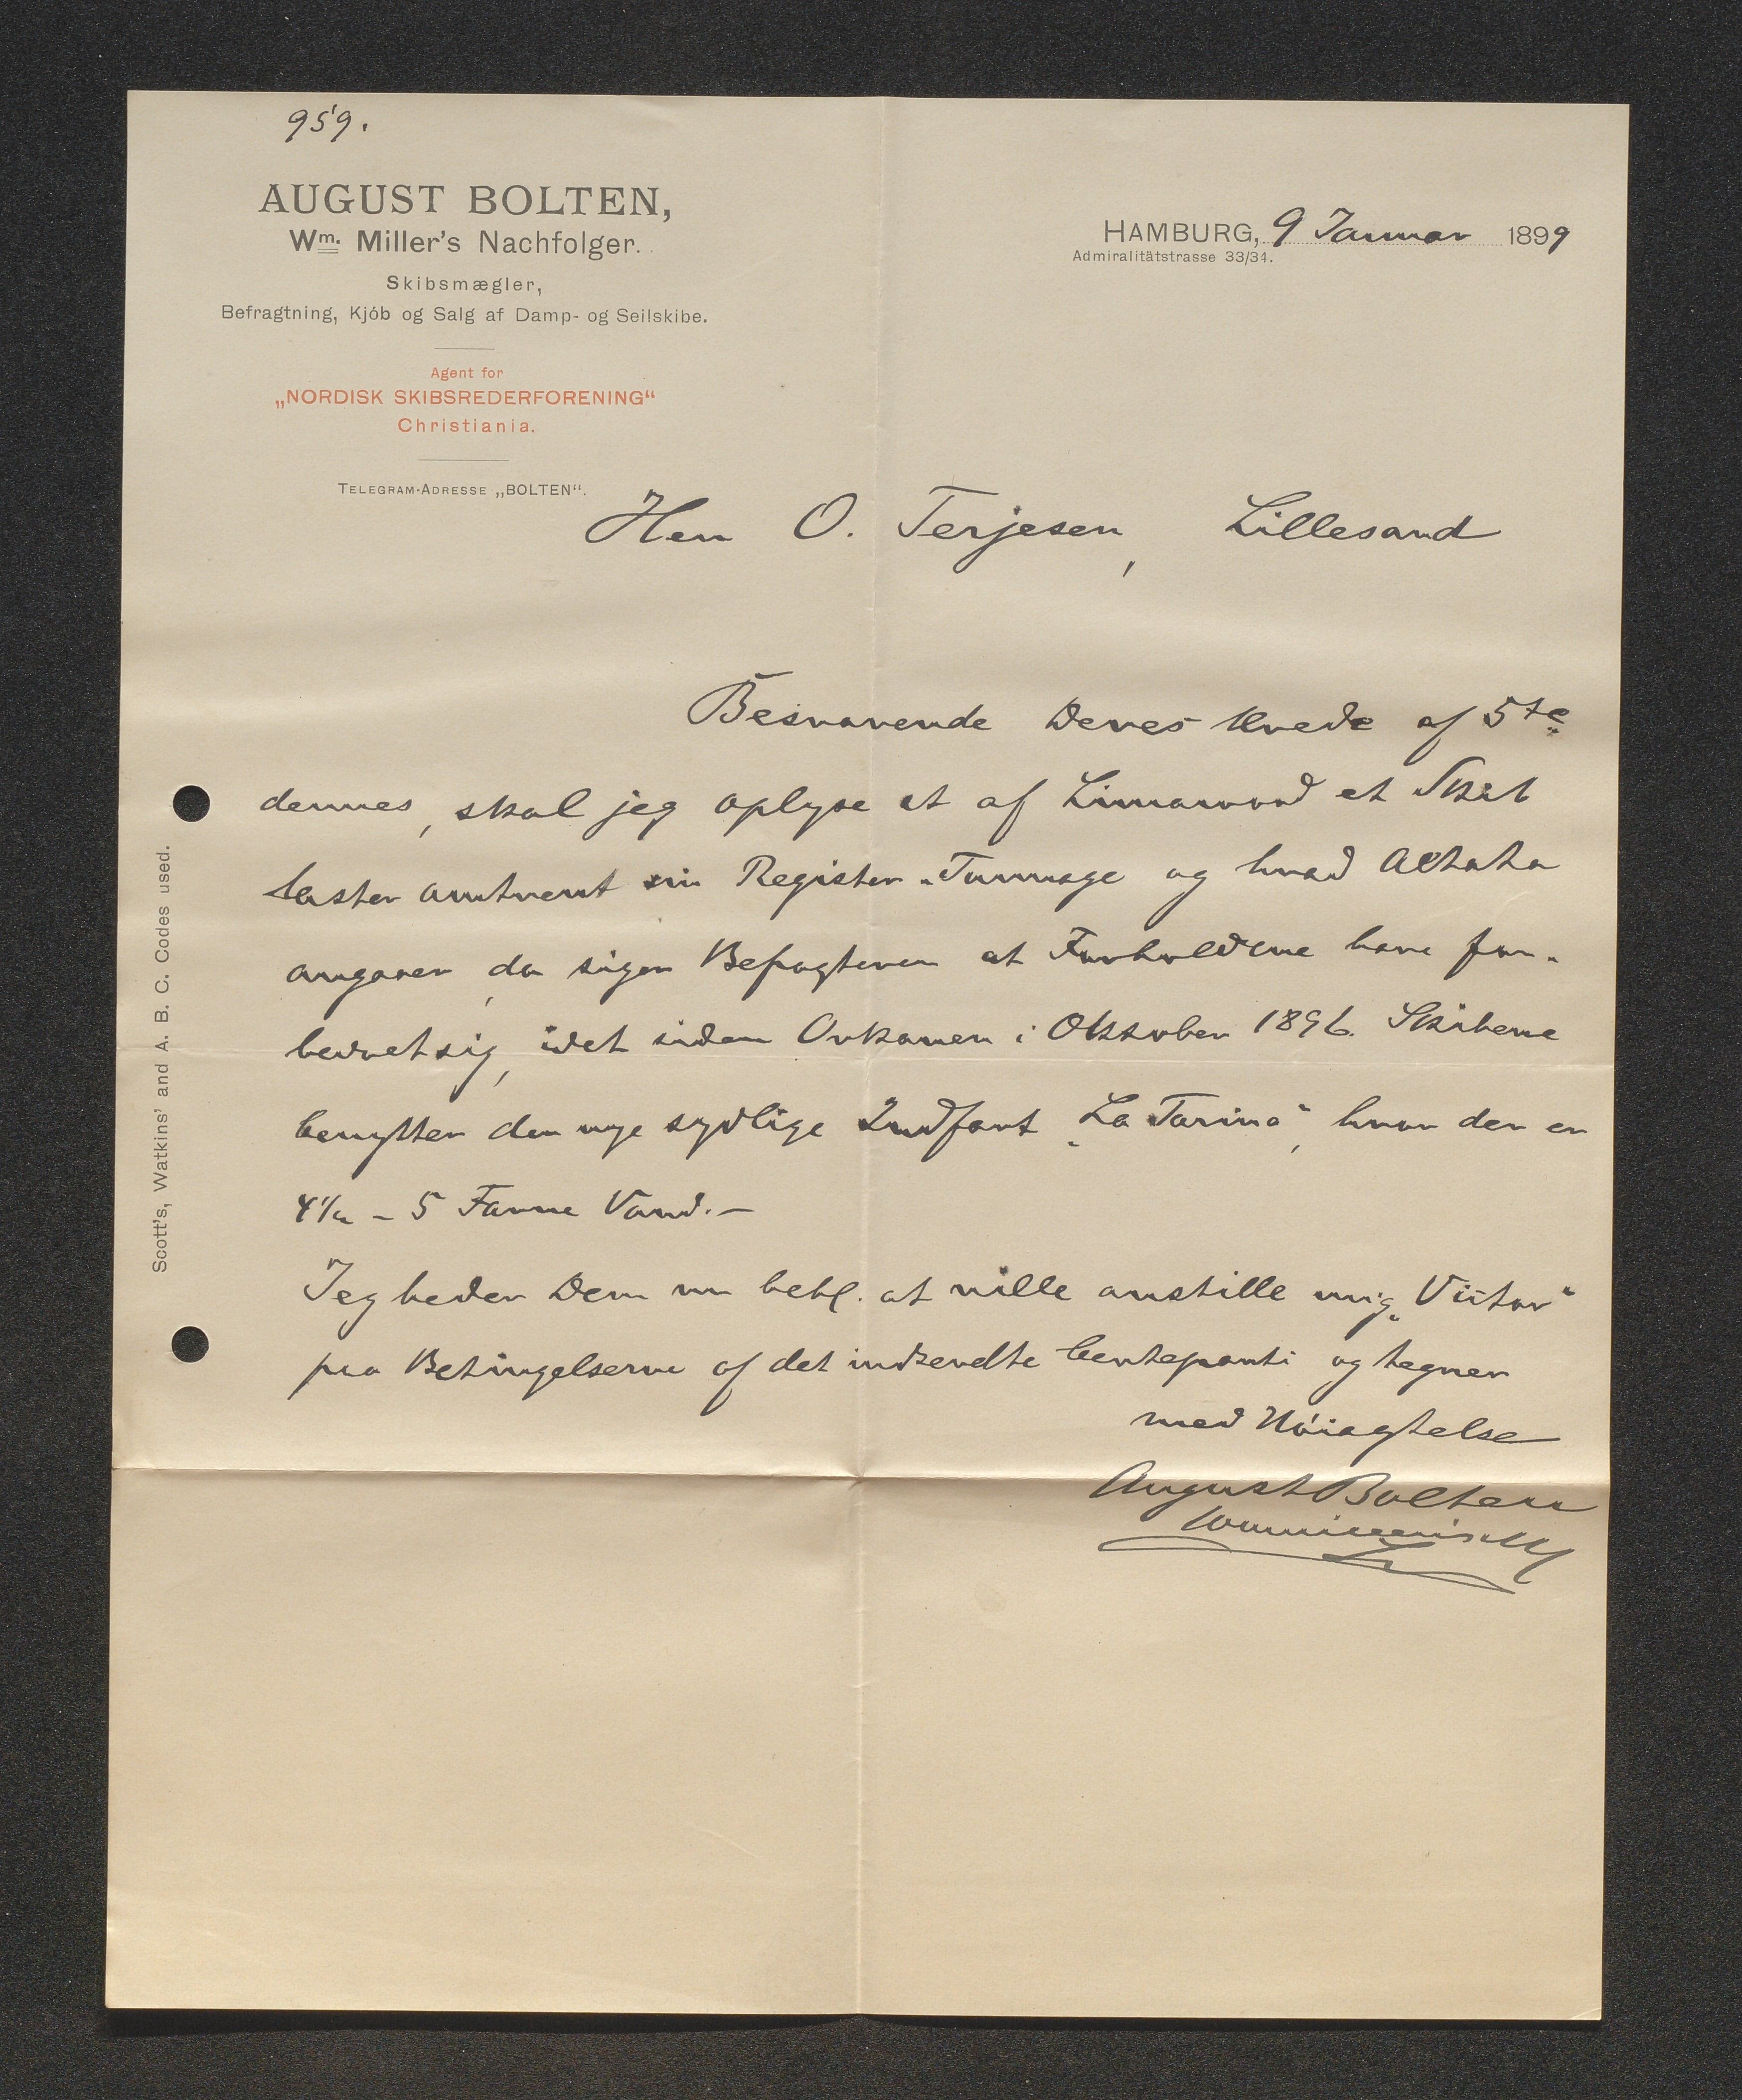 959.
AUGUST BOLTEN,
Wm. Miller's Nachfolger.
Skibsmægler,
Befragtning, Kjób og Salg af Damp- og Seilskibe.
Agent for
„NORDISK SKIBSREDERFORENING“
Christiania.
TELEGRAM-ADRESSE „BOLTEN“.
HAMBURG, 9 Januar 1899
Admiralitätstrasse 33/34.
Herr O. Terjesen, Lillesand
Besvarende Deres Ærede af 5te
dennes, skal jeg oplyse at af Limawood et Skib
laster omtrent sin Register-Tonnage og hvad Altata
angaaer, da siger Befragteren at Forholdene have for-
bedret sig, idet siden Orkanen i Oktober 1896. Skibene
benytter den nye sydlige Indfart „La Tarina“, hvor der er
4 1/2 - 5 Favne Vand. -
Jeg beder Dem nu behl. at ville anstille mig „Victor“
paa Betingelserne af det indsendte Certeparti og tegner
med Høiagtelse
August Bolten
Scott's, Watkins' and A. B. C. Codes used.